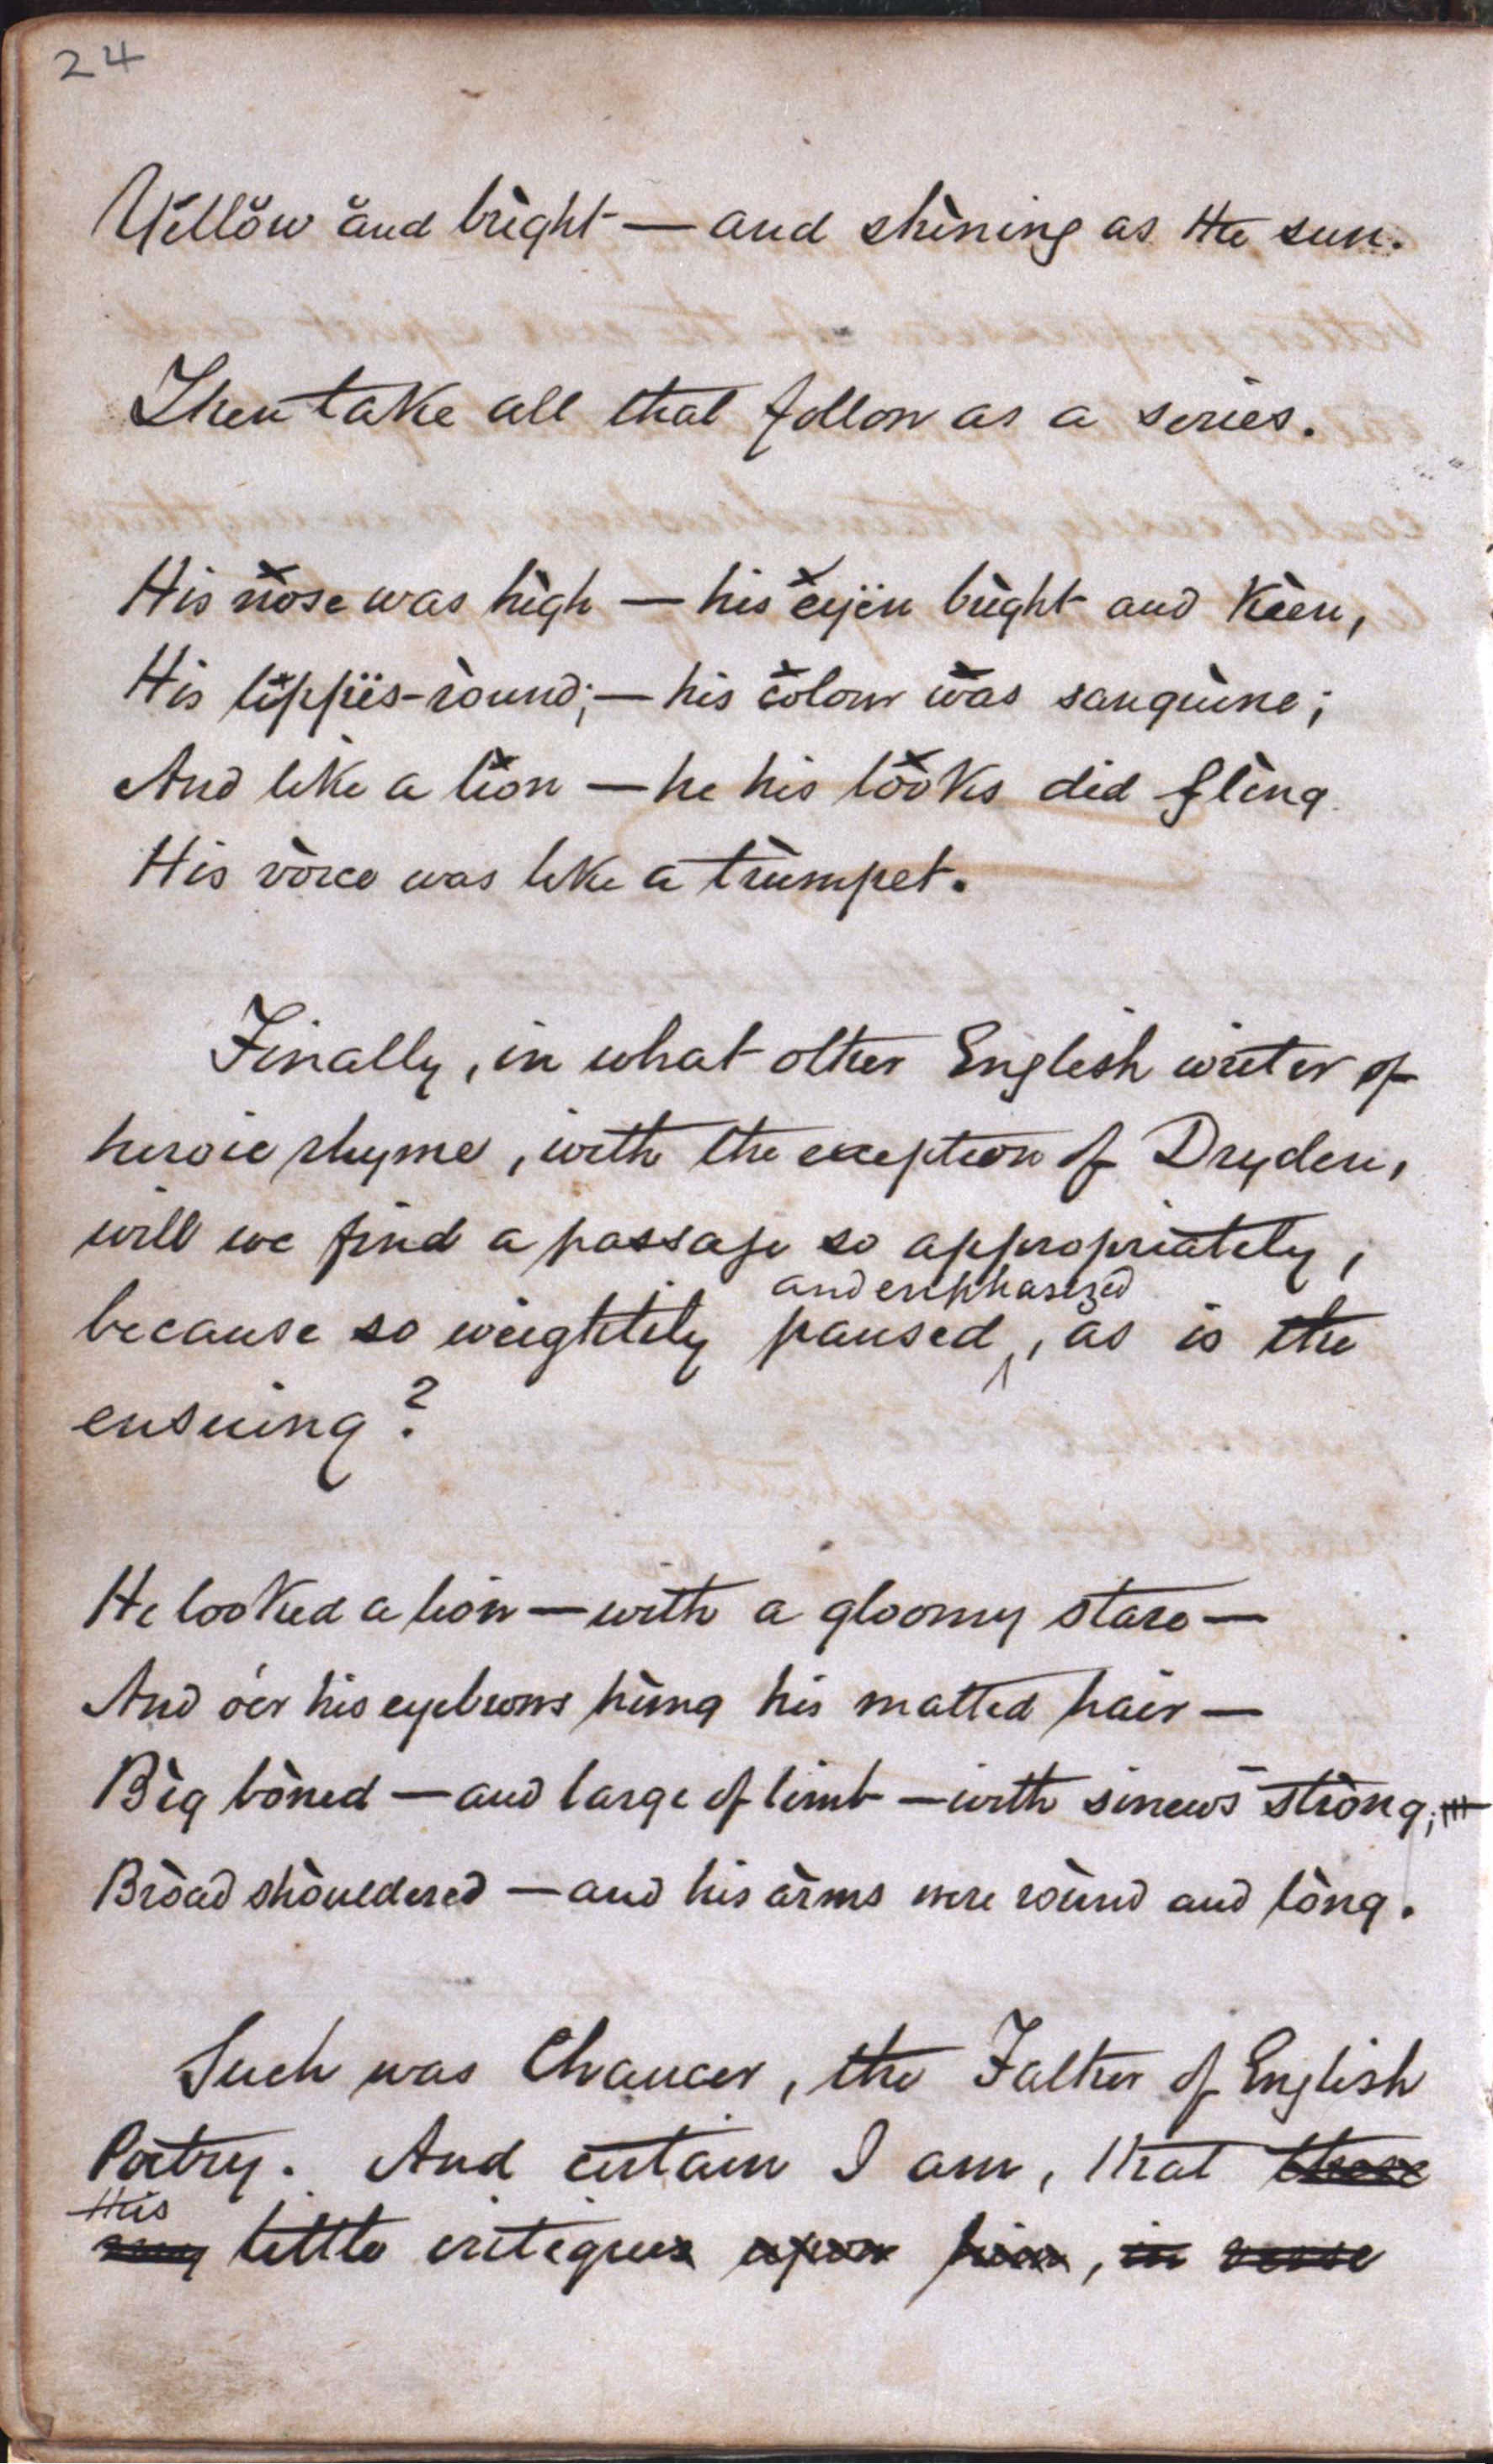 24
Yèllŏw ănd brìght — and shìning as the sun.
Then take all that follow as a series.
His nòse was hìgh — his èyën brìght and Kèen,
His lìppës-ròund; — his còlour wās sanguìne;
And lìke a lìon — he his lòoKs did flìng
His vòice was liKe a trùmpet.
Finally, in what other English writer of
heroic rhyme, with the exception of Dryden,
will we find a passage so appropriately,
and emphasized
because so weightily paused, as is the
ensuing?
He looKed a lion — with a gloomy stare —
And o'er his eyebrows hùng his matted hair —
Bìg bòned — and large of limb — with sinews stròng;
Bròad shòuldered — and his àrms were ròund and lòng.
Such was Chaucer, the Father of English
Poetry. And certain I am, that these
this
my little critiques upon him, in verse